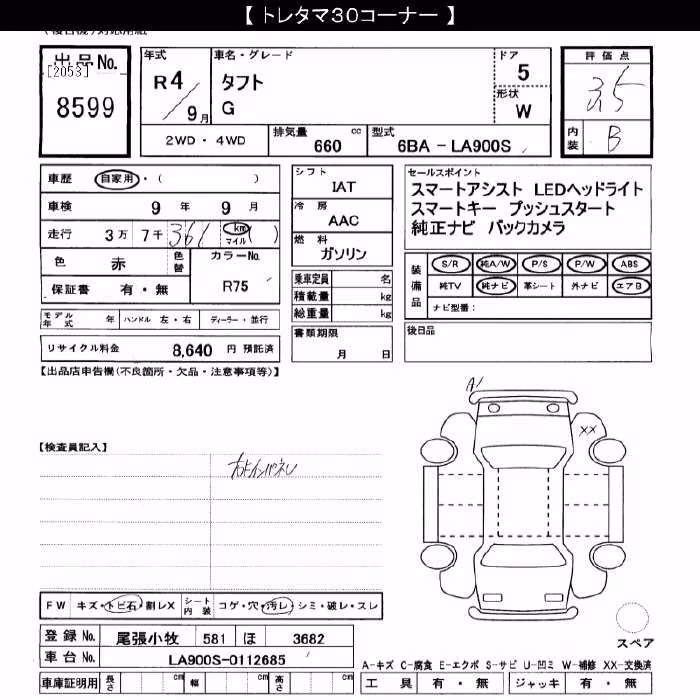 【 トレタマ30コーナー 】
出品No.
[2053]
8599
年式
R4
9月
車名・グレード
タフト
G
ドア
5
形状
W
2WD・4WD
排気量 660 cc
型式 6BA - LA900S
評価点
3.5
内装 B
車歴 自家用・( )
車検 9年 9月
走行 3万 7千 361 (km マイル)
色 赤 色替
カラーNo.
R75
保証書 有・無
シフト
IAT
冷房
AAC
燃料
ガソリン
乗車定員 名
積載量 kg
総重量 kg
セールスポイント
スマートアシスト LEDヘッドライト
スマートキー プッシュスタート
純正ナビ バックカメラ
装備品
S/R 純A/W P/S P/W ABS
純TV 純ナビ 革シート 外ナビ エアB
ナビ型番:
モデル年式 年 ハンドル 左・右 ディーラー・並行
リサイクル料金 8,640 円 預託済
書類期限
月 日
後日品
【出品店申告欄(不良箇所・欠品・注意事項等)】
【検査員記入】
A1
XX
FW キズ・トビ石・割レX シート内装 コゲ・穴・汚レ・シミ・破レ・スレ
登録No. 尾張小牧 581 ほ 3682
車台No. LA900S-0112685
車庫証明用 長さ cm 幅 cm 高さ cm
スペア
A-キズ C-腐食 E-エクボ S-サビ U-凹ミ W-補修 XX-交換済
工具 有・無 ジャッキ 有・無